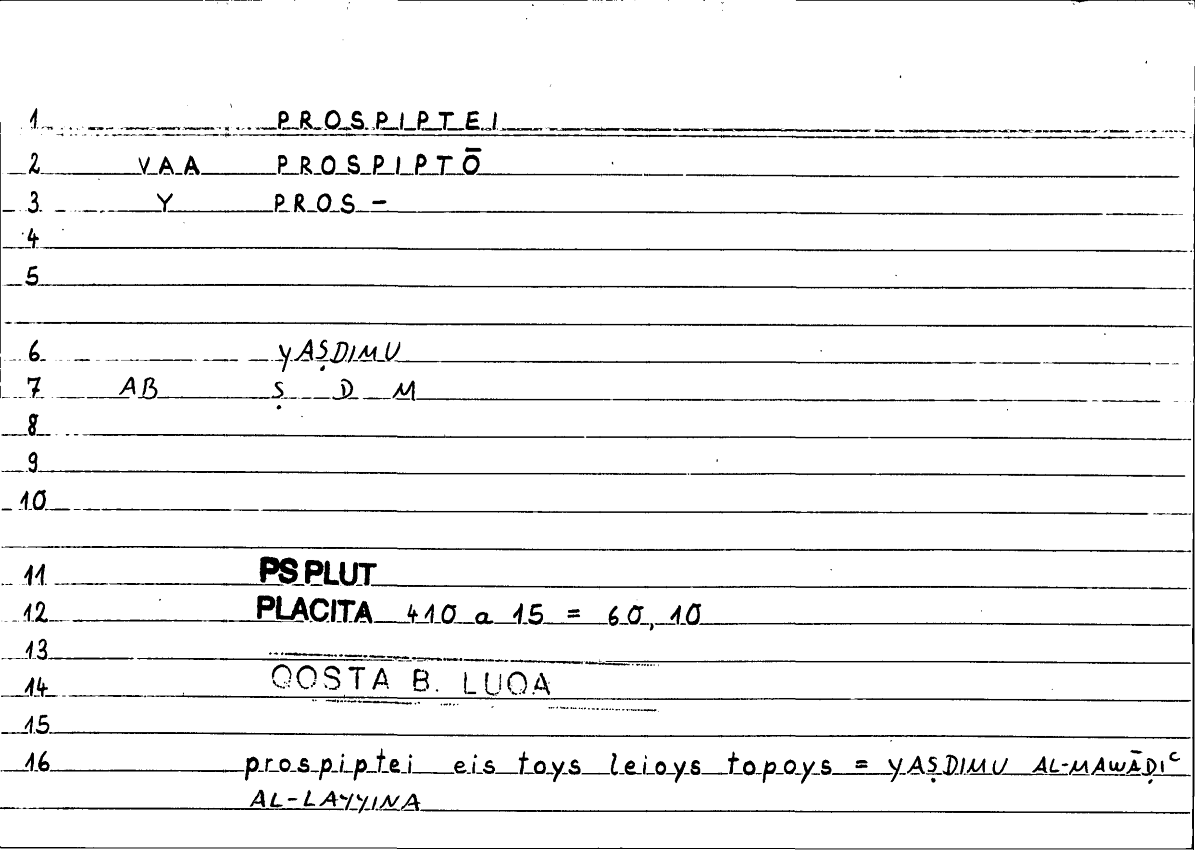 1 PROSPIPTEI
2 VAA PROSPIPTŌ
3 Y PROS-
4
5
6 YAṢDIMU
7 AB Ṣ D M
8
9
10
11 PS PLUT
12 PLACITA 410 a 15 = 60, 10
13
14 QOSTA B. LUQA
15
16 prospiptei eis toys leioys topoys = YAṢDIMU AL-MAWĀḌIᶜ
AL-LAYYINA